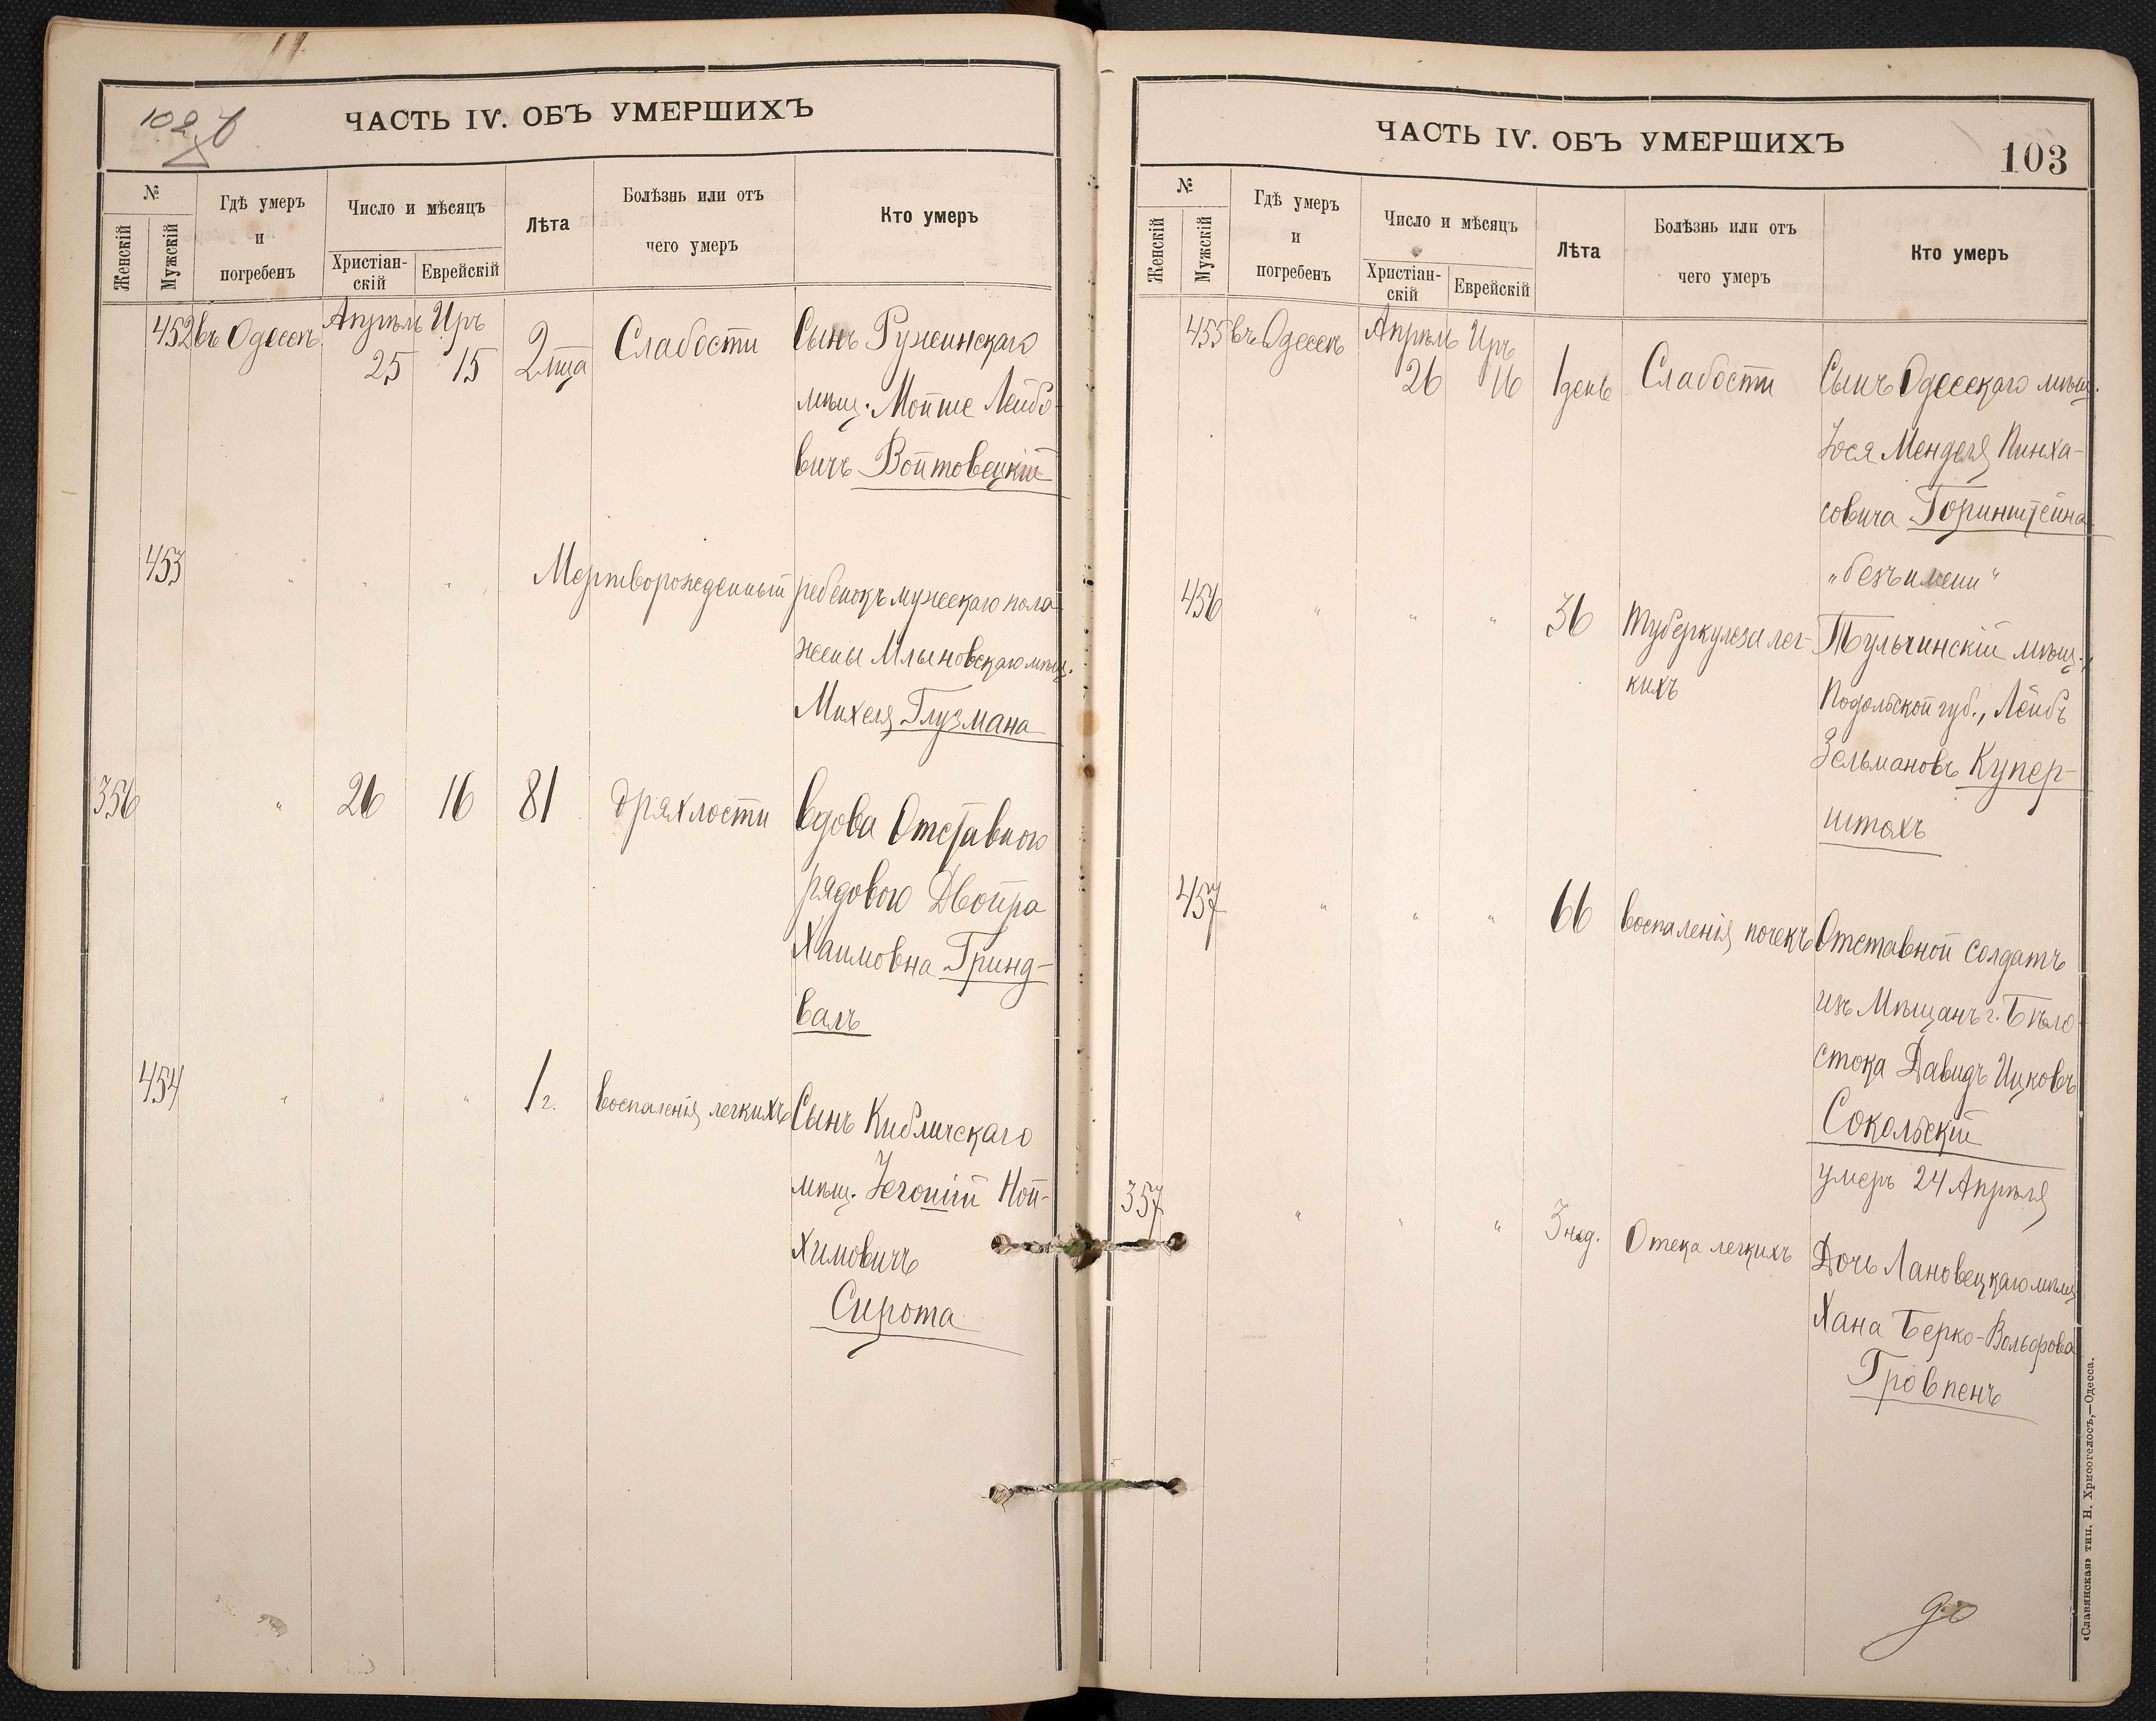 ЧАСТЬ IV. ОБЪ УМЕРШИХЪ
№
Женскій
Мужскій
Гдѣ умеръ
и
погребенъ
Число и мѣсяцъ
Христіан-
скій
Еврейскій
Лѣта
Болѣзнь или отъ
чего умеръ
Кто умеръ
452 въ Одессѣ Апрѣль 25 Иръ 15 2 мца Слабости Сынъ Ружинскаго
мѣщ. Мойше Лейбо-
вичъ Войтовецкій
453 " " " Мертворожденный ребенокъ мужескаго пола
жены Млыновскаго мѣщ.
Михеля Глузмана
356 " 26 16 81 дряхлости вдова Отставного
рядового Двойра
Хаимовна Гринд-
валъ
454 " " " 1 г. воспаленія легкихъ Сынъ Кибличскаго
мѣщ. Ной-
химовичъ
Сирота
ЧАСТЬ IV. ОБЪ УМЕРШИХЪ
103
№
Женскій
Мужскій
Гдѣ умеръ
и
погребенъ
Число и мѣсяцъ
Христіан-
скій
Еврейскій
Лѣта
Болѣзнь или отъ
чего умеръ
Кто умеръ
455 въ Одессѣ Апрѣль 26 Иръ 16 1 день Слабости Сынъ Одесскаго мѣщ.
Іося Менделя Пинха-
совича Горинштейна
„безъ имени“
456 " " " 36 Туберкулеза лег- Тульчинскій мѣщ.,
кихъ Подольской губ., Лейбъ
Зельмановъ Купер-
штохъ
457 " " " 66 воспаленія почекъ Отставной солдатъ
изъ Мѣщанъ г. Бѣло
стока Давидъ Ицковъ
Сокольскій
умеръ 24 Апрѣля
357 " " " 3 нед. Отека легкихъ Дочь Лановецкаго мѣщ
Хана Берко-Вольфова
Гровпенъ
«Славянская» тип. Н. Хрисогелосъ,—Одесса.